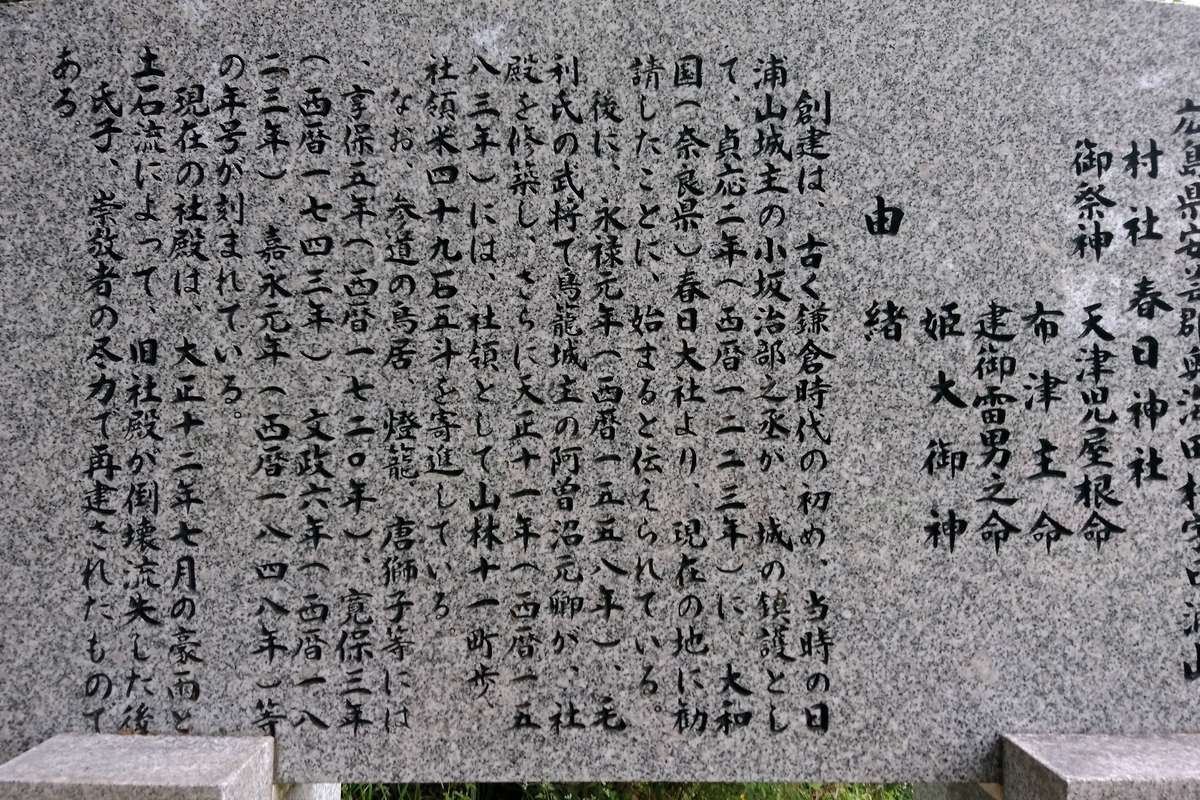 広島県安芸郡奥海田村字日浦山
村社 春日神社
御祭神 天津児屋根命
布津主命
建御雷男之命
姫大御神
由緒
創建は、古く鎌倉時代の初め、当時の日
浦山城主の小坂治部之丞が、城の鎮護とし
て、貞応二年(西暦一二二三年)に、大和
国(奈良県)春日大社より、現在の地に勧
請したことに、始まると伝えられている。
後に、永禄元年(西暦一五五八年)、毛
利氏の武将て鳥籠城主の阿曽沼元卿が、社
殿を修築し、さらに天正十一年(西暦一五
八三年)には、社領として山林十一町歩、
社領米四十九石五斗を寄進している。
なお、参道の鳥居、燈籠、唐獅子等には
、享保五年(西暦一七二〇年)、寛保三年
(西暦一七四三年)、文政六年(西暦一八
二三年)、嘉永元年(西暦一八四八年)等
の年号が刻まれている。
現在の社殿は、大正十二年七月の豪雨と
土石流によって、旧社殿が倒壊流失した後
、氏子、崇敬者の尽力で再建されたものて
ある